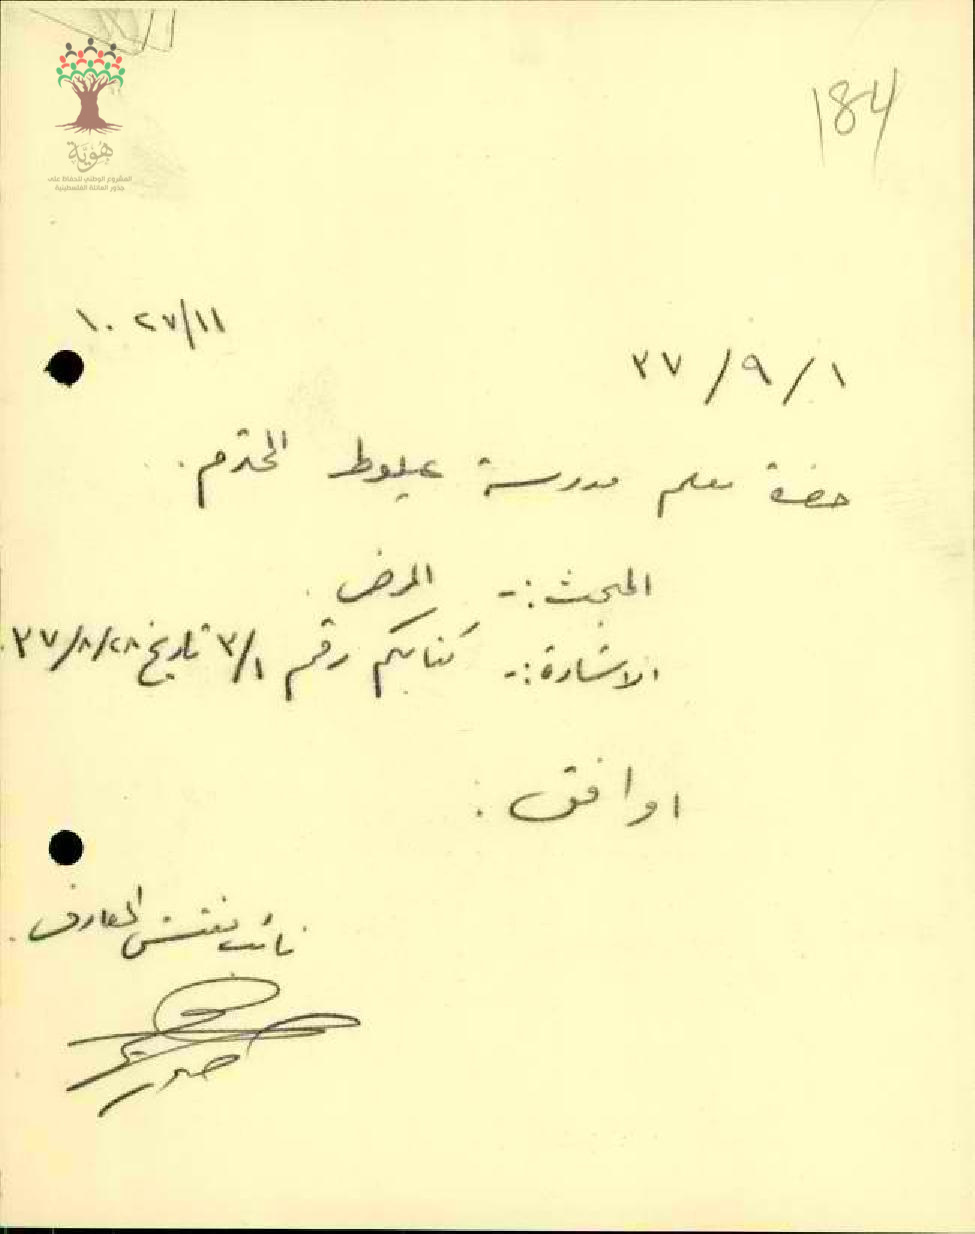 184
هوية
المشروع الوطني للحفاظ على
جذور العائلة الفلسطينية
١٠٢٧/١١
٣٧/٩/١
حضرة معلم مدرسة عيلوط المحترم.
المبحث :- المرض.
الاشارة :- كتابكم رقم ٣/١ تاريخ ٣٧/٨/٢٨.
اوافق.
نائب مفتش المعارف.